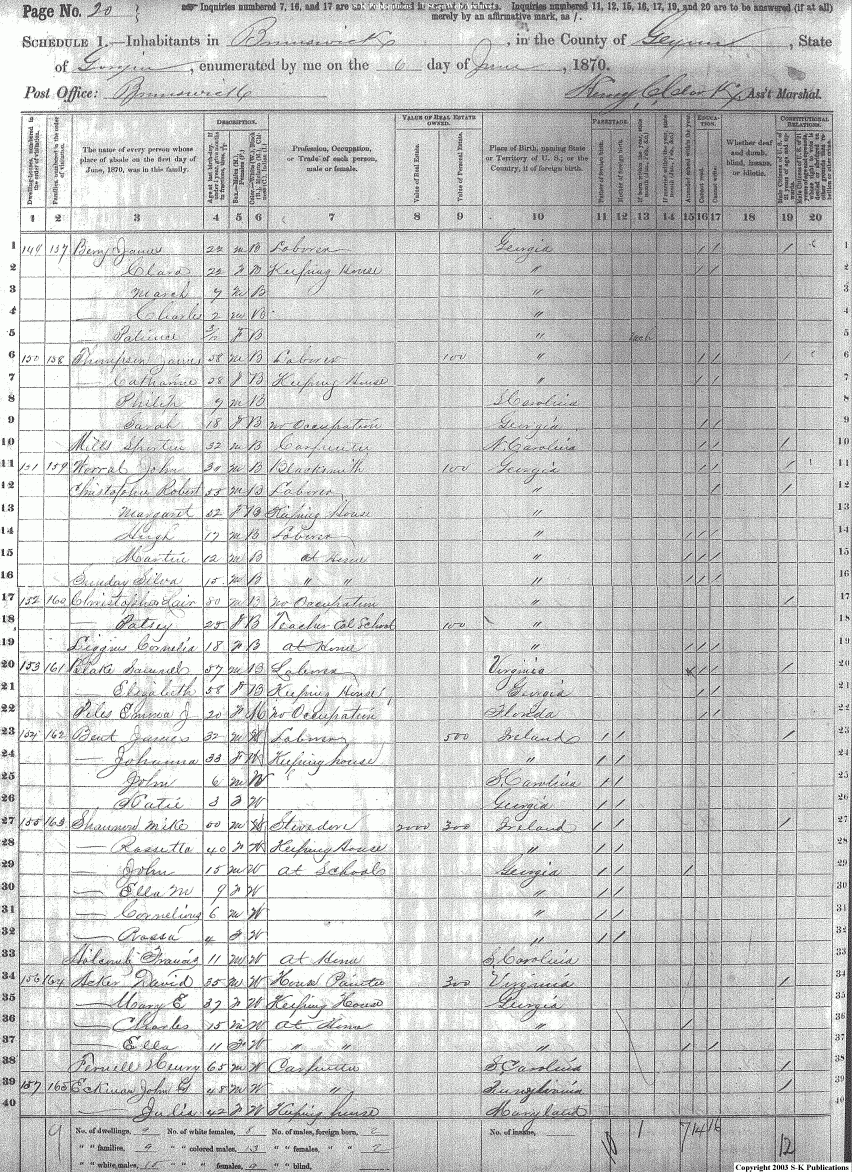 Page No. 20
Inquiries numbered 7, 16, and 17 are not to be asked in respect to infants. Inquiries numbered 11, 12, 15, 16, 17, 19, and 20 are to be answered (if at all)
merely by an affirmative mark, as /.
SCHEDULE 1.—Inhabitants in Brunswick, in the County of Glynn, State
of Georgia, enumerated by me on the 6 day of June, 1870.
Post Office: Brunswick Ass't Marshal.
Dwelling-houses, numbered in the order of visitation.
Families, numbered in the order of visitation.
The name of every person whose place of abode on the first day of June, 1870, was in this family.
DESCRIPTION.
Profession, Occupation, or Trade of each person, male or female.
VALUE OF REAL ESTATE OWNED.
Value of Real Estate.
Value of Personal Estate.
Place of Birth, naming State or Territory of U. S.; or the Country, if of foreign birth.
PARENTAGE.
Father of foreign birth.
Mother of foreign birth.
EDUCATION.
Cannot read.
Cannot write.
Whether deaf and dumb, blind, insane, or idiotic.
CONSTITUTIONAL RELATIONS.
1 2 3 4 5 6 7 8 9 10 11 12 13 14 15 16 17 18 19 20
1 149 157 Berry James 22 M B Laborer Georgia / / / 1
2 — Clara 22 F B Keeping House " / / 2
3 — March 7 M B " 3
4 — Charles 2 M B " 4
5 — Patience F B " 5
6 150 158 Thompson James 58 M B Laborer 100 " / / 6
7 — Catharine 58 F B Keeping House " / / 7
8 Philip 9 M B S. Carolina 8
9 Sarah 18 F B No Occupation Georgia / / 9
10 Mills 32 M B Carpenter N. Carolina / / / 10
11 151 159 Worral John 30 M B Blacksmith 100 Georgia / / / 11
12 Christopher Robert 55 M B Laborer " / / 12
13 Margaret 52 F B Keeping House " 13
14 — Hugh 17 M B Laborer " / / / 14
15 — Martin 12 M B at Home " / / / 15
16 Sunday Silva 15 M B " " " / / / 16
17 152 160 Christopher 80 M B No Occupation " / 17
18 — Patsey 25 F B Teacher Col School 100 " 18
19 Liggins Cornelia 18 F B at Home " / / / 19
20 153 161 Blake Samuel 57 M B Laborer Virginia / / / 20
21 — Elizabeth 58 F B Keeping House Georgia / / 21
22 Piles Emma J 20 F M No Occupation Florida / / 22
23 154 162 Bent James 32 M W Laborer 500 Ireland / / / 23
24 — Johanna 33 F W Keeping house " / / 24
25 John 6 M W S. Carolina / / 25
26 Katie 3 F W Georgia / / 26
27 155 163 Shannon Mike 50 M W Stevedore 2000 300 Ireland / / / 27
28 — Rossetta 40 F W Keeping House " / / 28
29 — John 15 M W at Schools Georgia / / / 29
30 — Ella M 9 F W " / / 30
31 — Cornelius 6 M W " / / 31
32 — Rossa 4 F W " / / 32
33 Holcomb Francis 11 M W at Home S. Carolina 33
34 156 164 Acker David 35 M W House Painter 300 Virginia / 34
35 — Mary E 37 F W Keeping House Georgia 35
36 — Charles 15 M W at Home " / 36
37 — Ella 11 F W " " " / / 37
38 Fernell Henry 65 M W Carpenter S. Carolina / 38
39 157 165 Eckman John 48 M W " Pennsylvania / 39
40 — Julia 42 F W Keeping house Maryland 40
No. of dwellings, 9 No. of white females, 8 No. of males, foreign born, 2 No. of insane,
" " families, 9 " " colored males, 13 " " females, " " 2
" " white males, " " " females, 9 " " blind,
10 1 7 14 16 12
Copyright 2003 S-K Publications